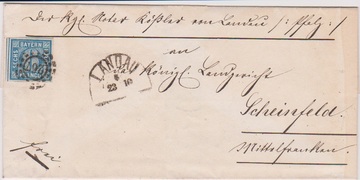 Der Kgl. Notar Kößler von Landau /: Pfalz :/
BAYERN
an
LANDAU
23 10
Königl. Landgericht
Scheinfeld
Mittelfranken.
frei